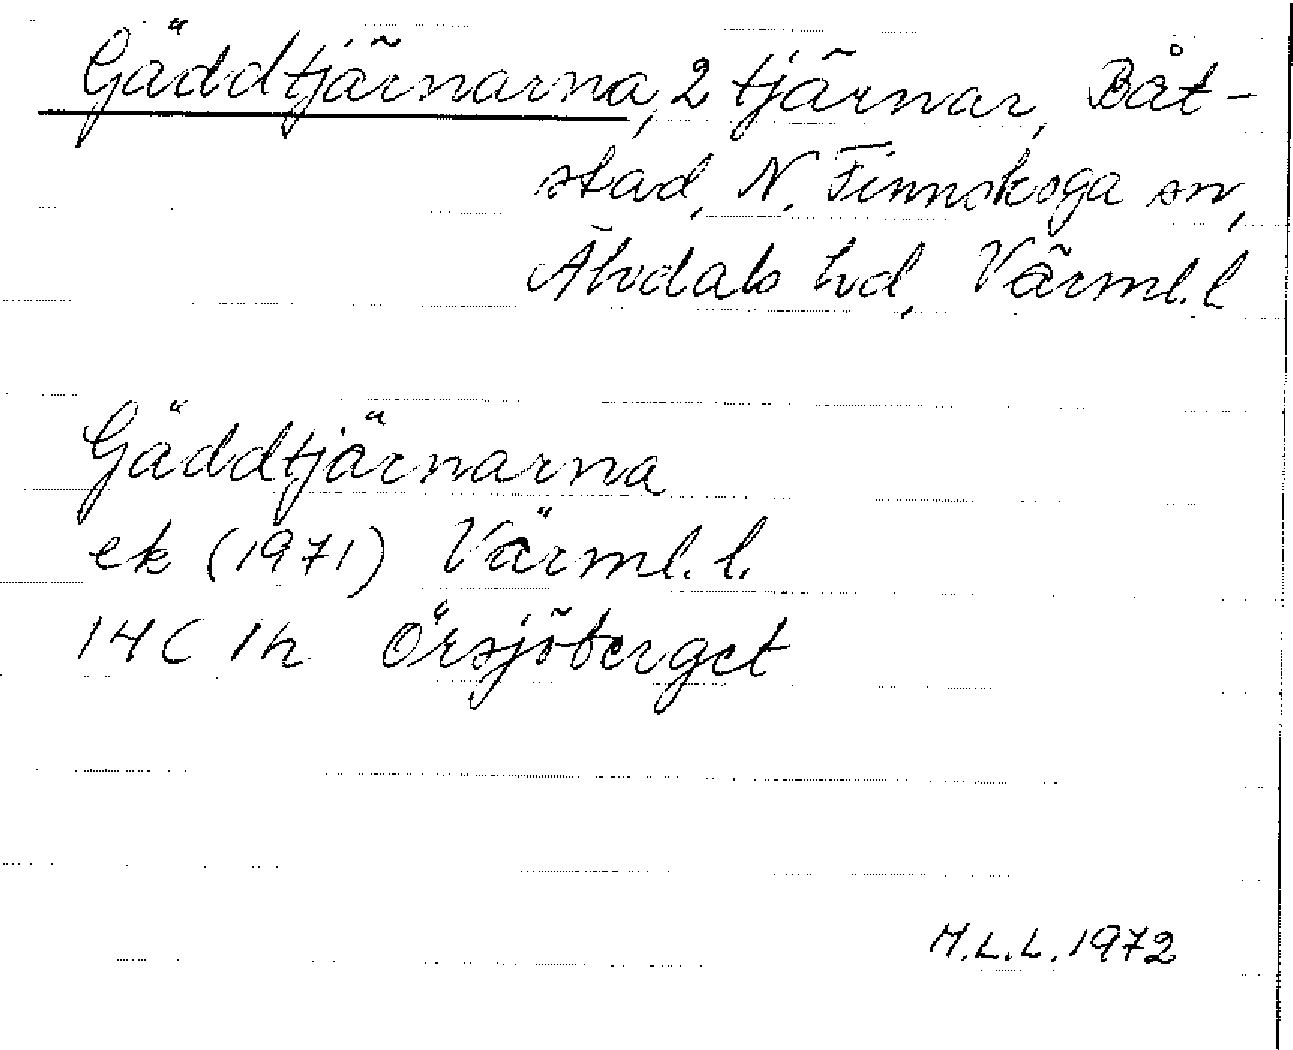 Gäddtjärnarna, 2 tjärnar, Båt-
stad, N. Finnskoga sn,
Älvdals hd, Värml. l
Gäddtjärnarna
ek (1971) Värml. l.
14C 1h Örsjöberget
M.L.L. 1972